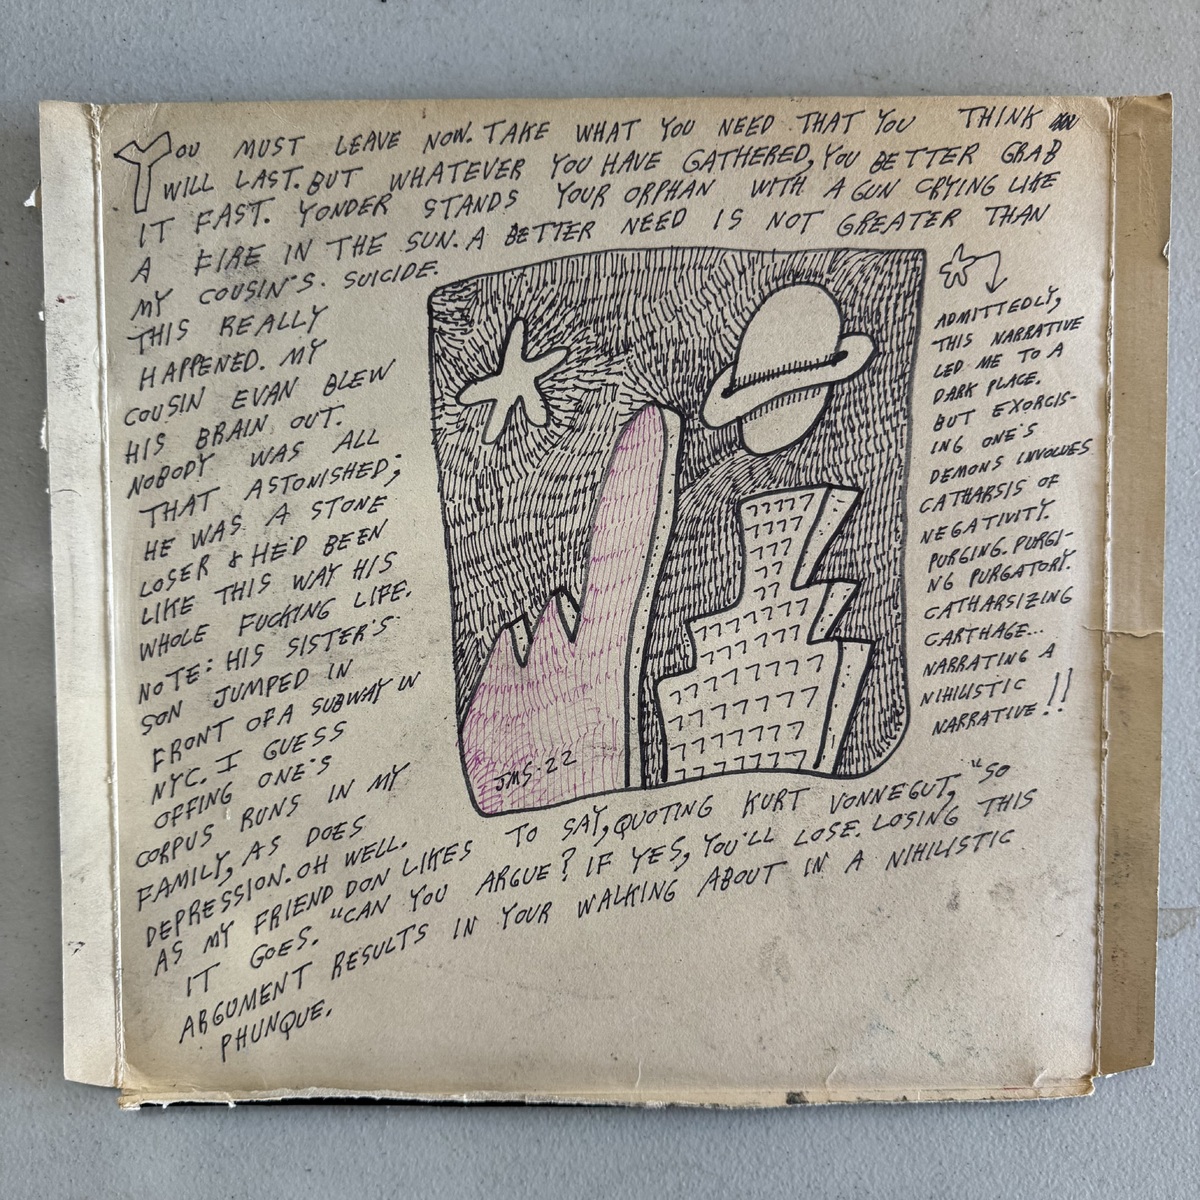 YOU MUST LEAVE NOW. TAKE WHAT YOU NEED THAT YOU THINK
WILL LAST. BUT WHATEVER YOU HAVE GATHERED, YOU BETTER GRAB
IT FAST. YONDER STANDS YOUR ORPHAN WITH A GUN CRYING LIKE
A FIRE IN THE SUN. A BETTER NEED IS NOT GREATER THAN
MY COUSIN'S. SUICIDE.
THIS REALLY
HAPPENED. MY
COUSIN EVAN BLEW
HIS BRAIN OUT.
NOBODY WAS ALL
THAT ASTONISHED;
HE WAS A STONE
LOSER & HE'D BEEN
LIKE THIS WAY HIS
WHOLE FUCKING LIFE.
NOTE: HIS SISTER'S
SON JUMPED IN
FRONT OF A SUBWAY IN
NYC. I GUESS
OFFING ONE'S
CORPUS RUNS IN MY
FAMILY, AS DOES
DEPRESSION. OH WELL.
AS MY FRIEND DON LIKES TO SAY, QUOTING KURT VONNEGUT, "SO
IT GOES. "CAN YOU ARGUE? IF YES, YOU'LL LOSE. LOSING THIS
ARGUMENT RESULTS IN YOUR WALKING ABOUT IN A NIHILISTIC
PHUNQUE.
ADMITTEDLY,
THIS NARRATIVE
LED ME TO A
DARK PLACE.
BUT EXORCIS-
ING ONE'S
DEMONS INVOLVES
CATHARSIS OF
NEGATIVITY.
PURGING. PURGI-
NG PURGATORY.
CATHARSIZING
CARTHAGE...
NARRATING A
NIHILISTIC
NARRATIVE!!
JMS·22